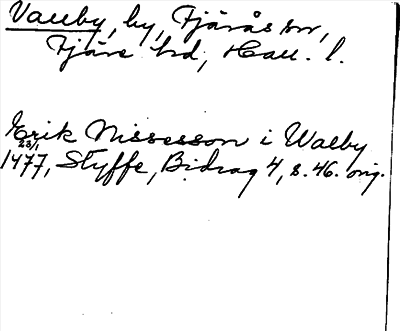 Vallby, by, Fjärås sn,
Fjäre hd, Hall. l.
Erik Nissesson i Walby
23/1
1477, Styffe, Bidrag 4, s. 46. orig.